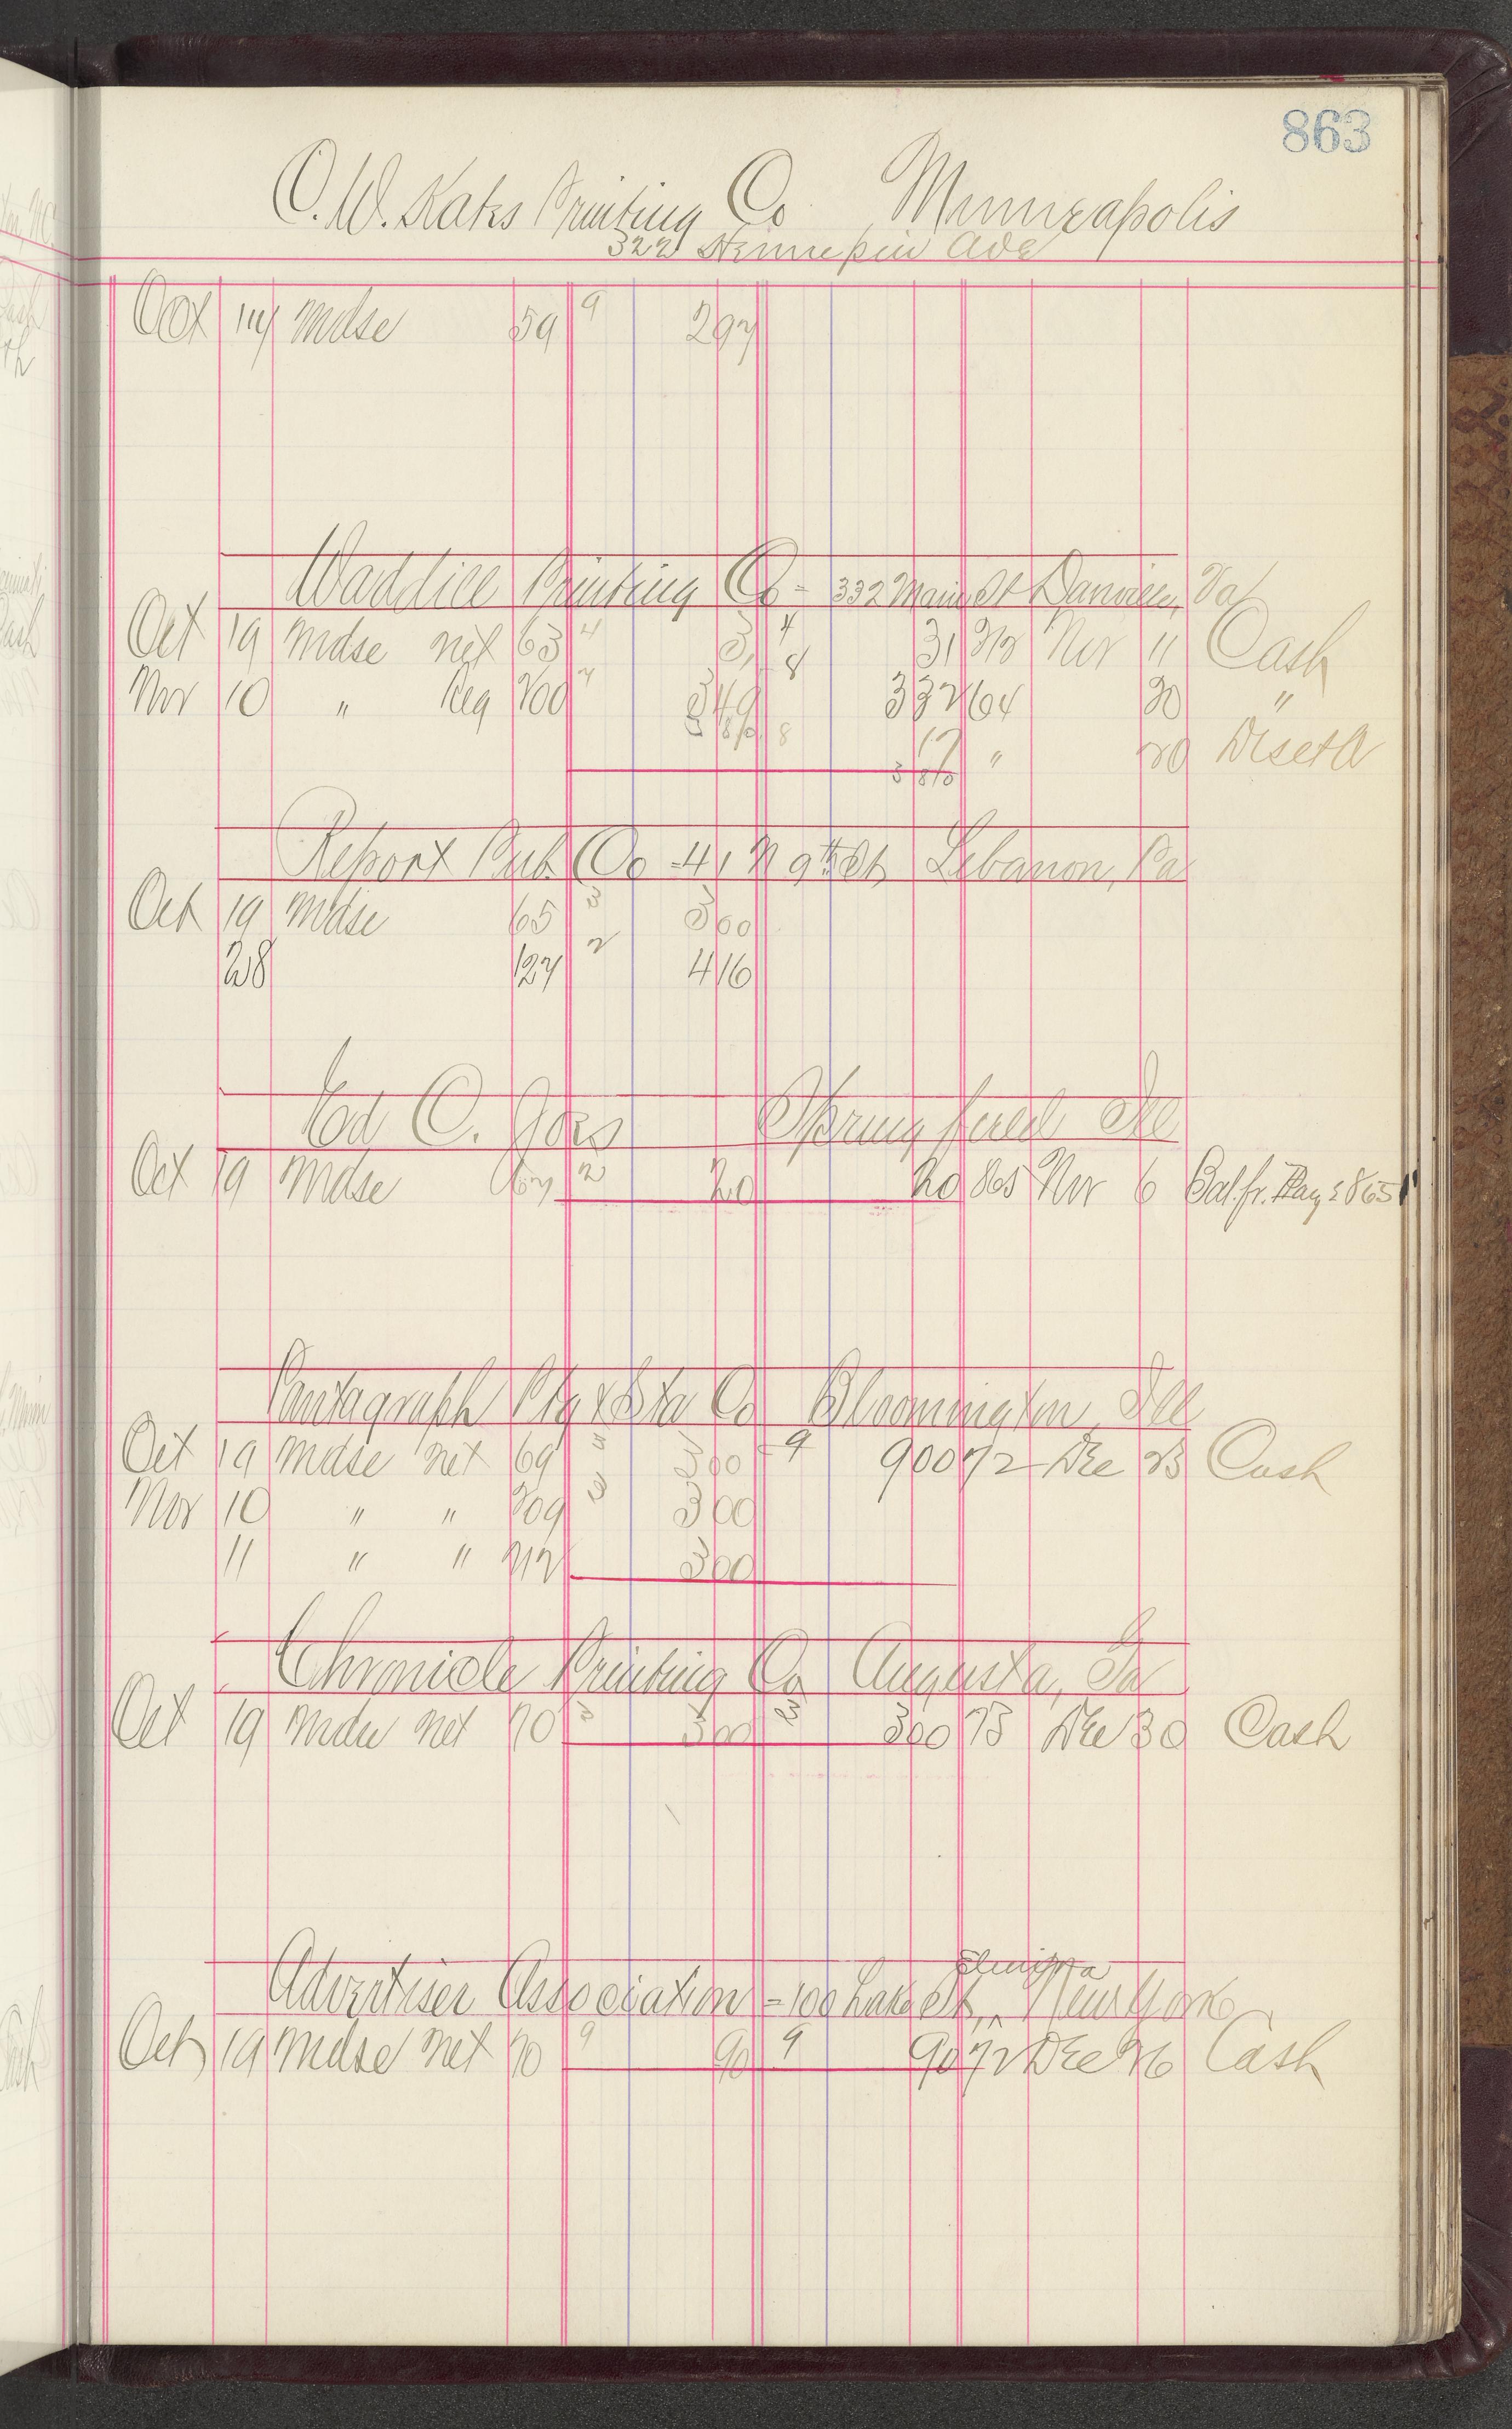 863
O. W. Kates Printing Co Minneapolis
322 Hennepin Ave
Oct 14 Mdse 59 9 297
Waddill Printing Co - 332 Main St Danville, Va
Oct 19 Mdse net 63 4 4 31 Nov 11 Cash
Nov 10 " Reg 200 7 8 349 332 64 20 "
8 17 " 20
Report Pub. Co - 41 N 9th St, Lebanon, Pa
Oct 19 Mdse 65 3 300
28 127 2 416
Ed C. Goes Springfield Ill
Oct 19 Mdse 67 2 20 20 865 Nov 6 Bal. fr. Pag 865
Pantagraph Ptg & Sta Co Bloomington, Ill
Oct 19 Mdse net 69 3 300 9 900 72 Dec 23 Cash
Nov 10 " " 209 3 300
11 " " 212 300
Chronicle Printing Co Augusta, Ga
Oct 19 Mdse net 70 3 300 3 300 73 Dec 30 Cash
Elmira
Advertiser Association - 100 Lake St, ^ New York
Oct 19 Mdse net 70 9 90 9 90 72 Dec 26 Cash